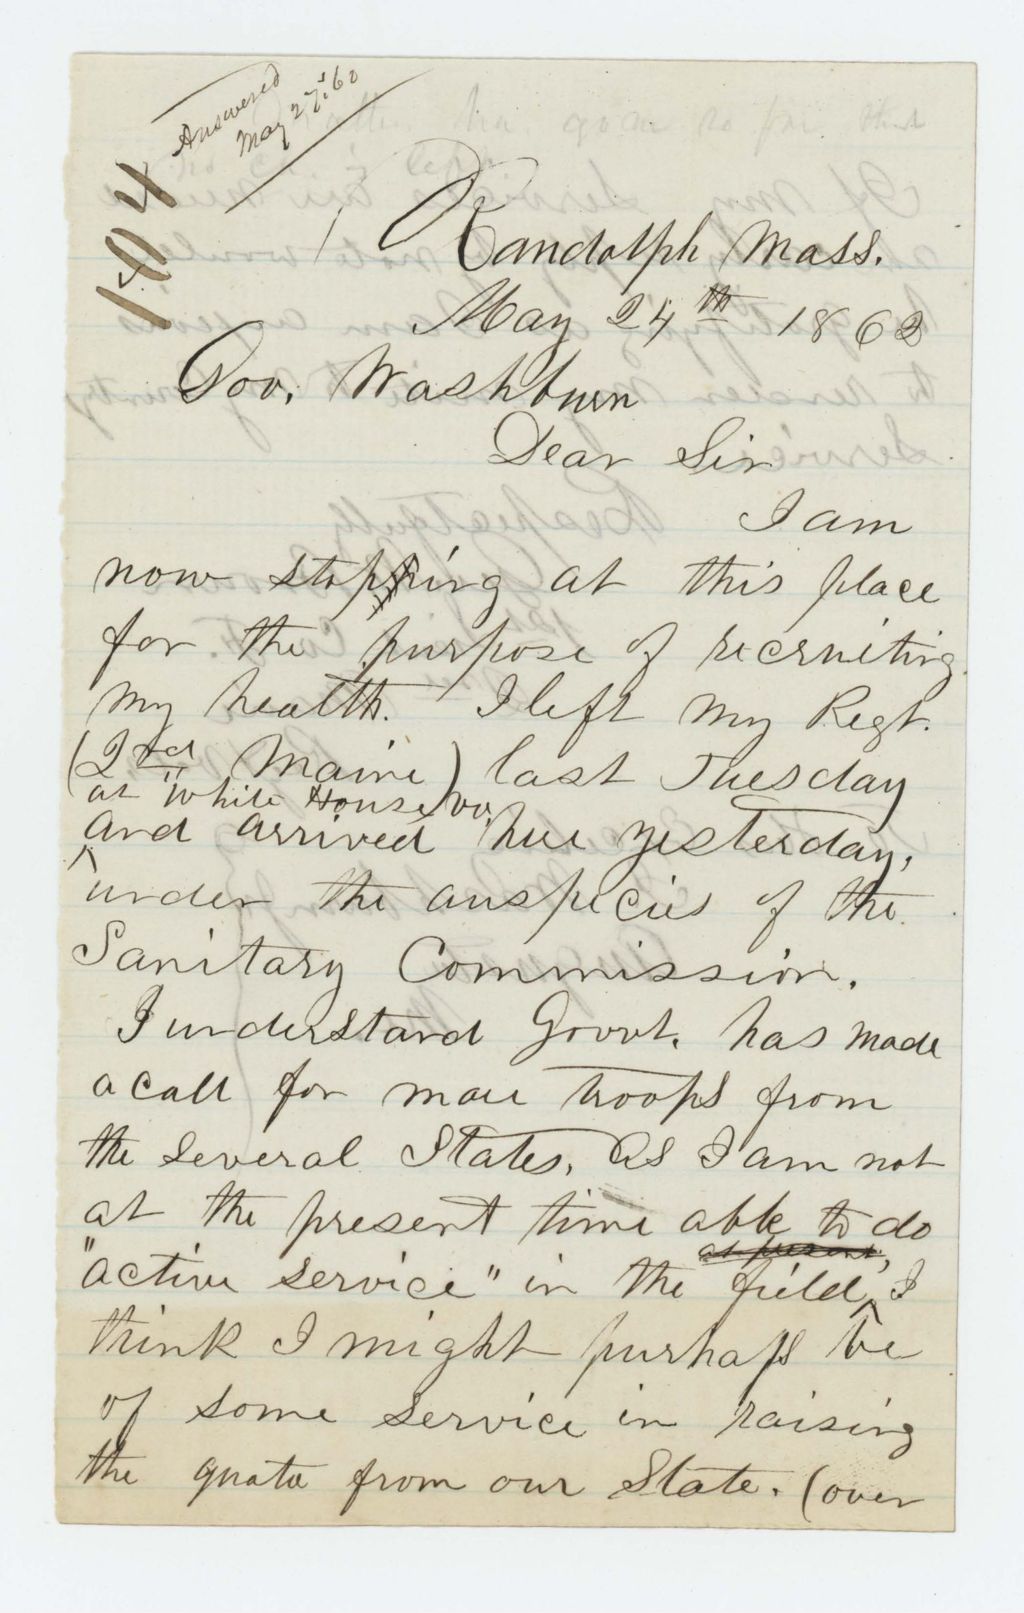 Answered
May 27. '62
104
Randolph Mass.
May 24th 1862
Gov. Washburn
Dear Sir
I am
now stopping at this place
for the purpose of recruiting
my health. I left my Regt.
(2nd Maine) last Tuesday
at "White House" va.
and arrived here yesterday,
under the auspecies of the
Sanitary Commission.
I understand Govvt. has made
a call for more troops from
the several States. As I am not
at the present time able to do
at present,
"active service" in the field, I
think I might purhaps be
of some service in raising
the quota from our State. (over